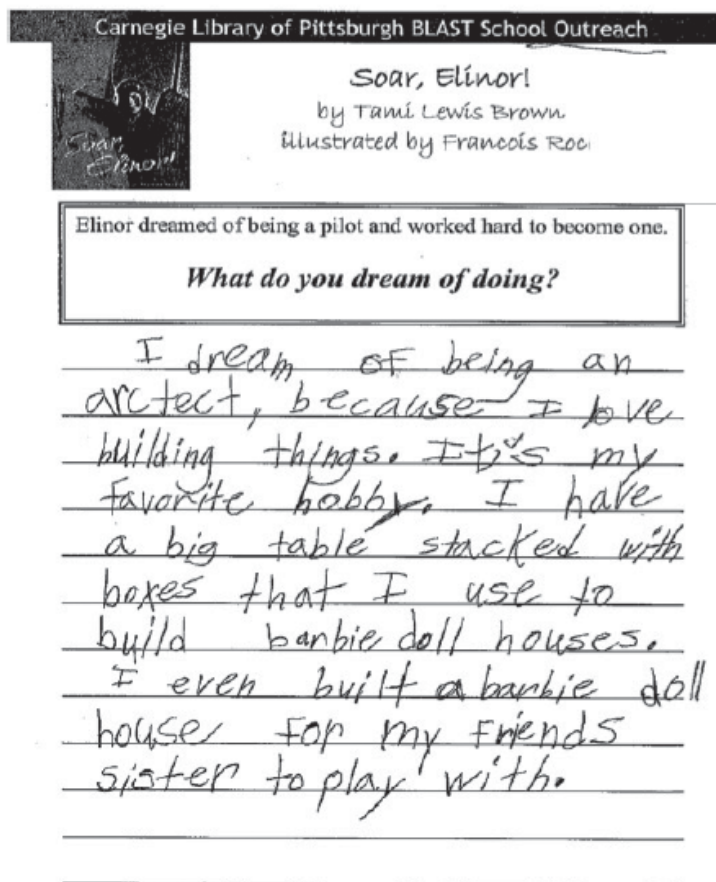 Carnegie Library of Pittsburgh BLAST School Outreach
Soar, Elinor!
by Tami Lewis Brown
illustrated by Francois Roc
Soar,
Elinor!
Elinor dreamed of being a pilot and worked hard to become one.
What do you dream of doing?
I dream of being an
arctect, because I love
building things. It's my
favorite hobby. I have
a big table stacked with
boxes that I use to
build barbie doll houses.
I even built a barbie doll
house for my friends
sister to play with.